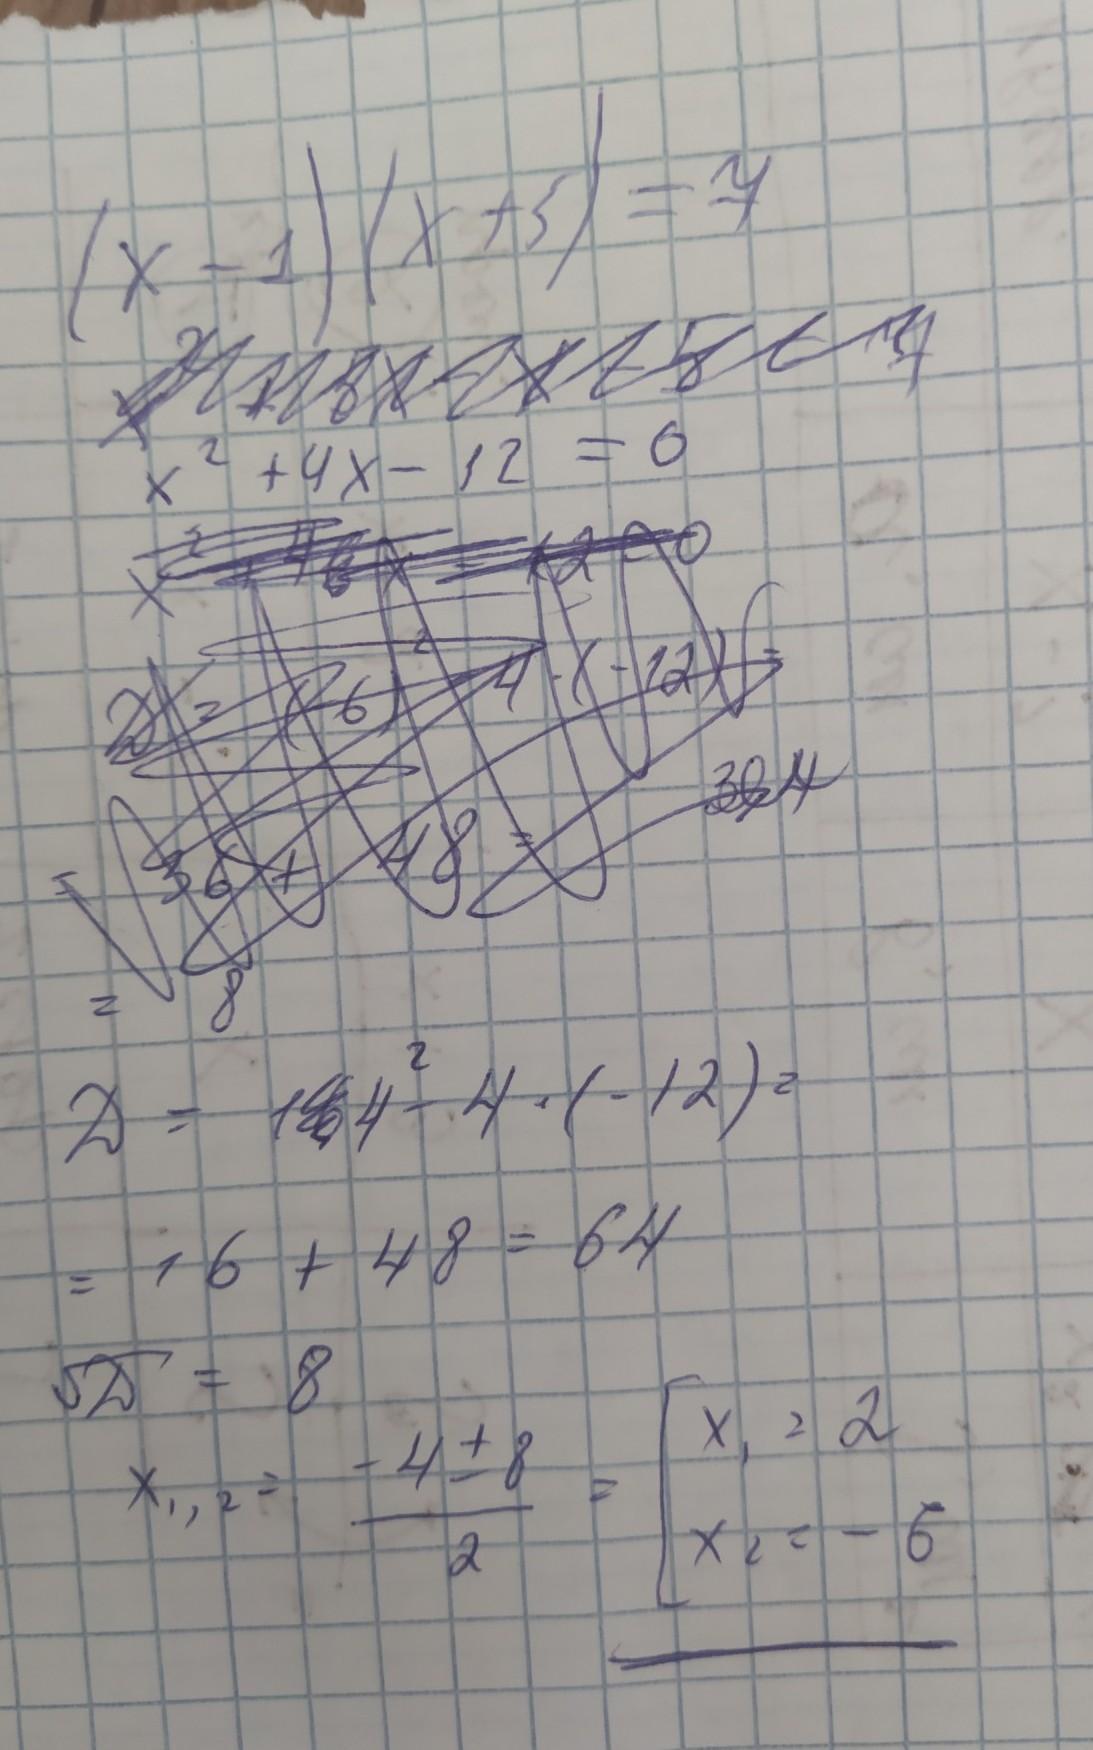 (x - 1)(x + 5) = 7
x² + 4x - 12 = 0
= 8
D = 4² - 4 · (-12) =
= 16 + 48 = 64
√D = 8
x₁,₂ = (-4 ± 8)/2 = [ x₁ = 2
x₂ = - 6